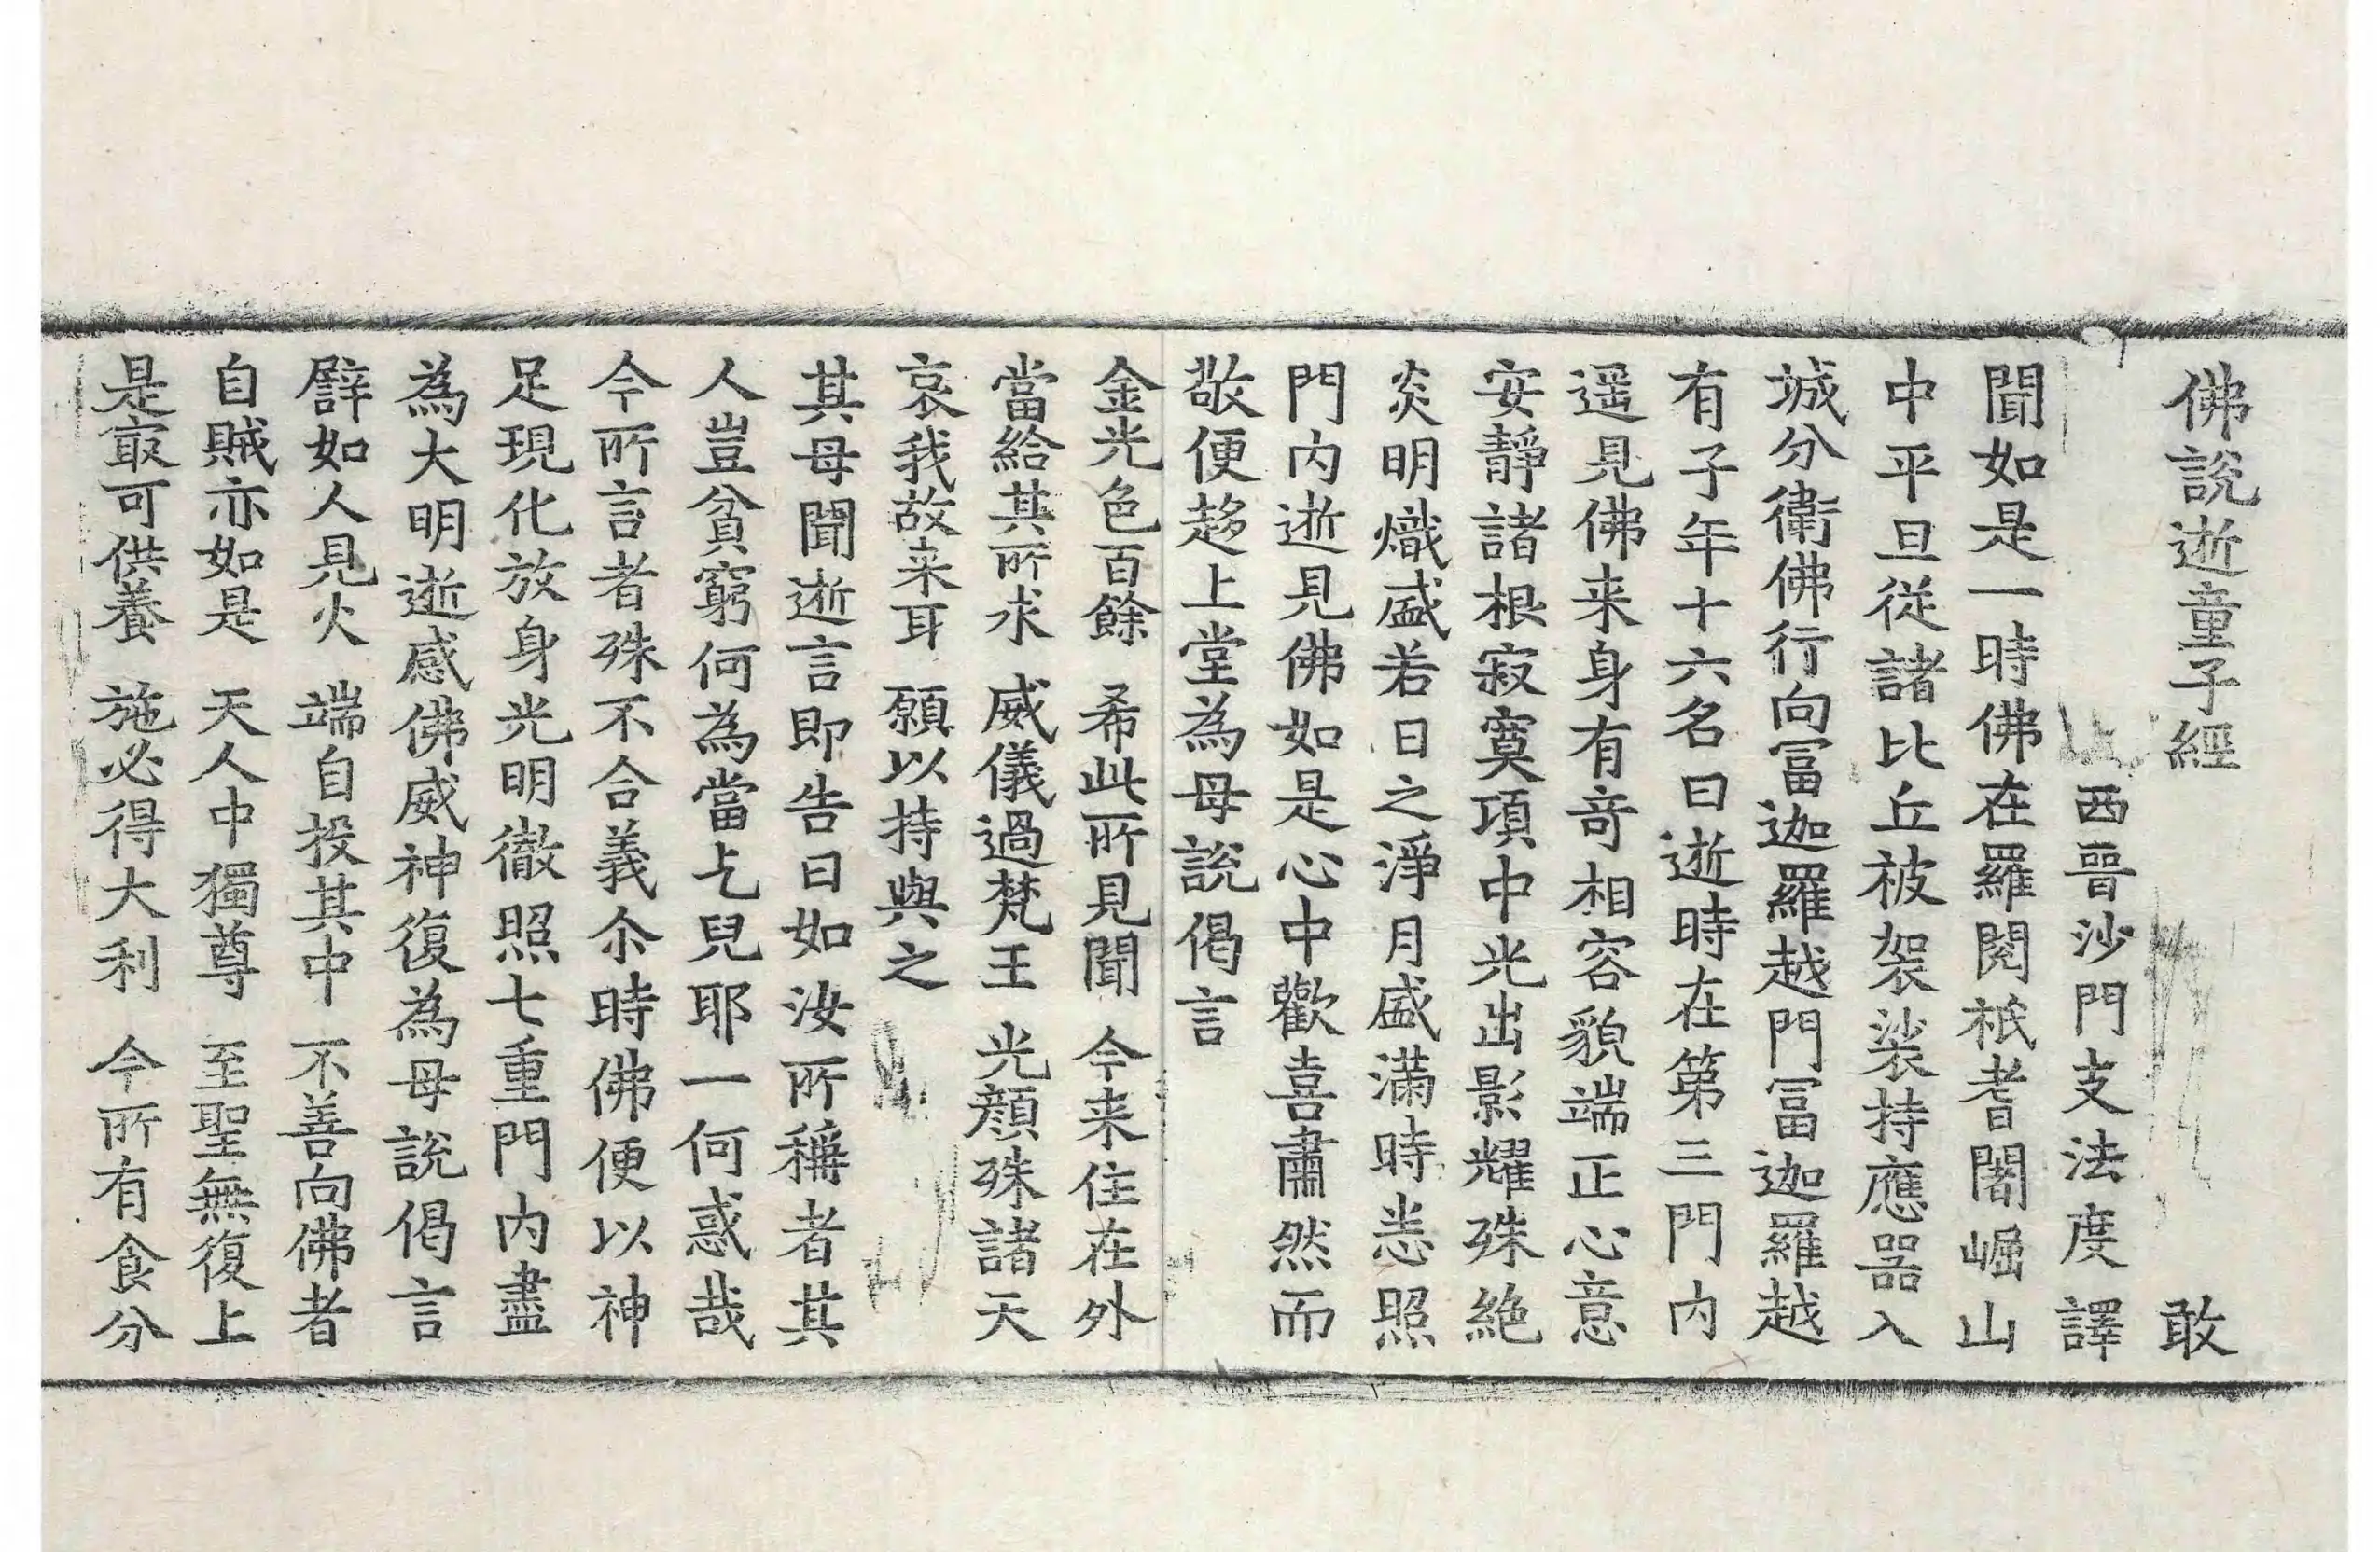 佛說逝童子經 敢
西晉沙門支法度 譯
聞如是一時佛在羅閱祇耆闍崛山
中平旦從諸比丘被袈裟持應器入
城分衛佛行向冨迦羅越門冨迦羅越
有子年十六名曰逝時在第三門內
遥見佛来身有竒相容貌端正心意
安靜諸根寂寞項中光出影耀殊絶
炎明熾盛若日之淨月盛滿時悉照
門内逝見佛如是心中歡喜肅然而
敬便趍上堂為母說偈言
金光色百餘 希此所見聞 今来住在外
當給其所求 威儀過梵王 光顔殊諸天
哀我故来耳 願以持與之
其母聞逝言即告曰如汝所稱者其
人豈貧窮何為當乞兒耶一何惑哉
今所言者殊不合義尒時佛便以神
足現化放身光明徹照七重門内盡
為大明逝感佛威神復為母說偈言
譬如人見火 端自投其中 不善向佛者
自賊亦如是 天人中獨尊 至聖無復上
是㝡可供養 施必得大利 今所有食分